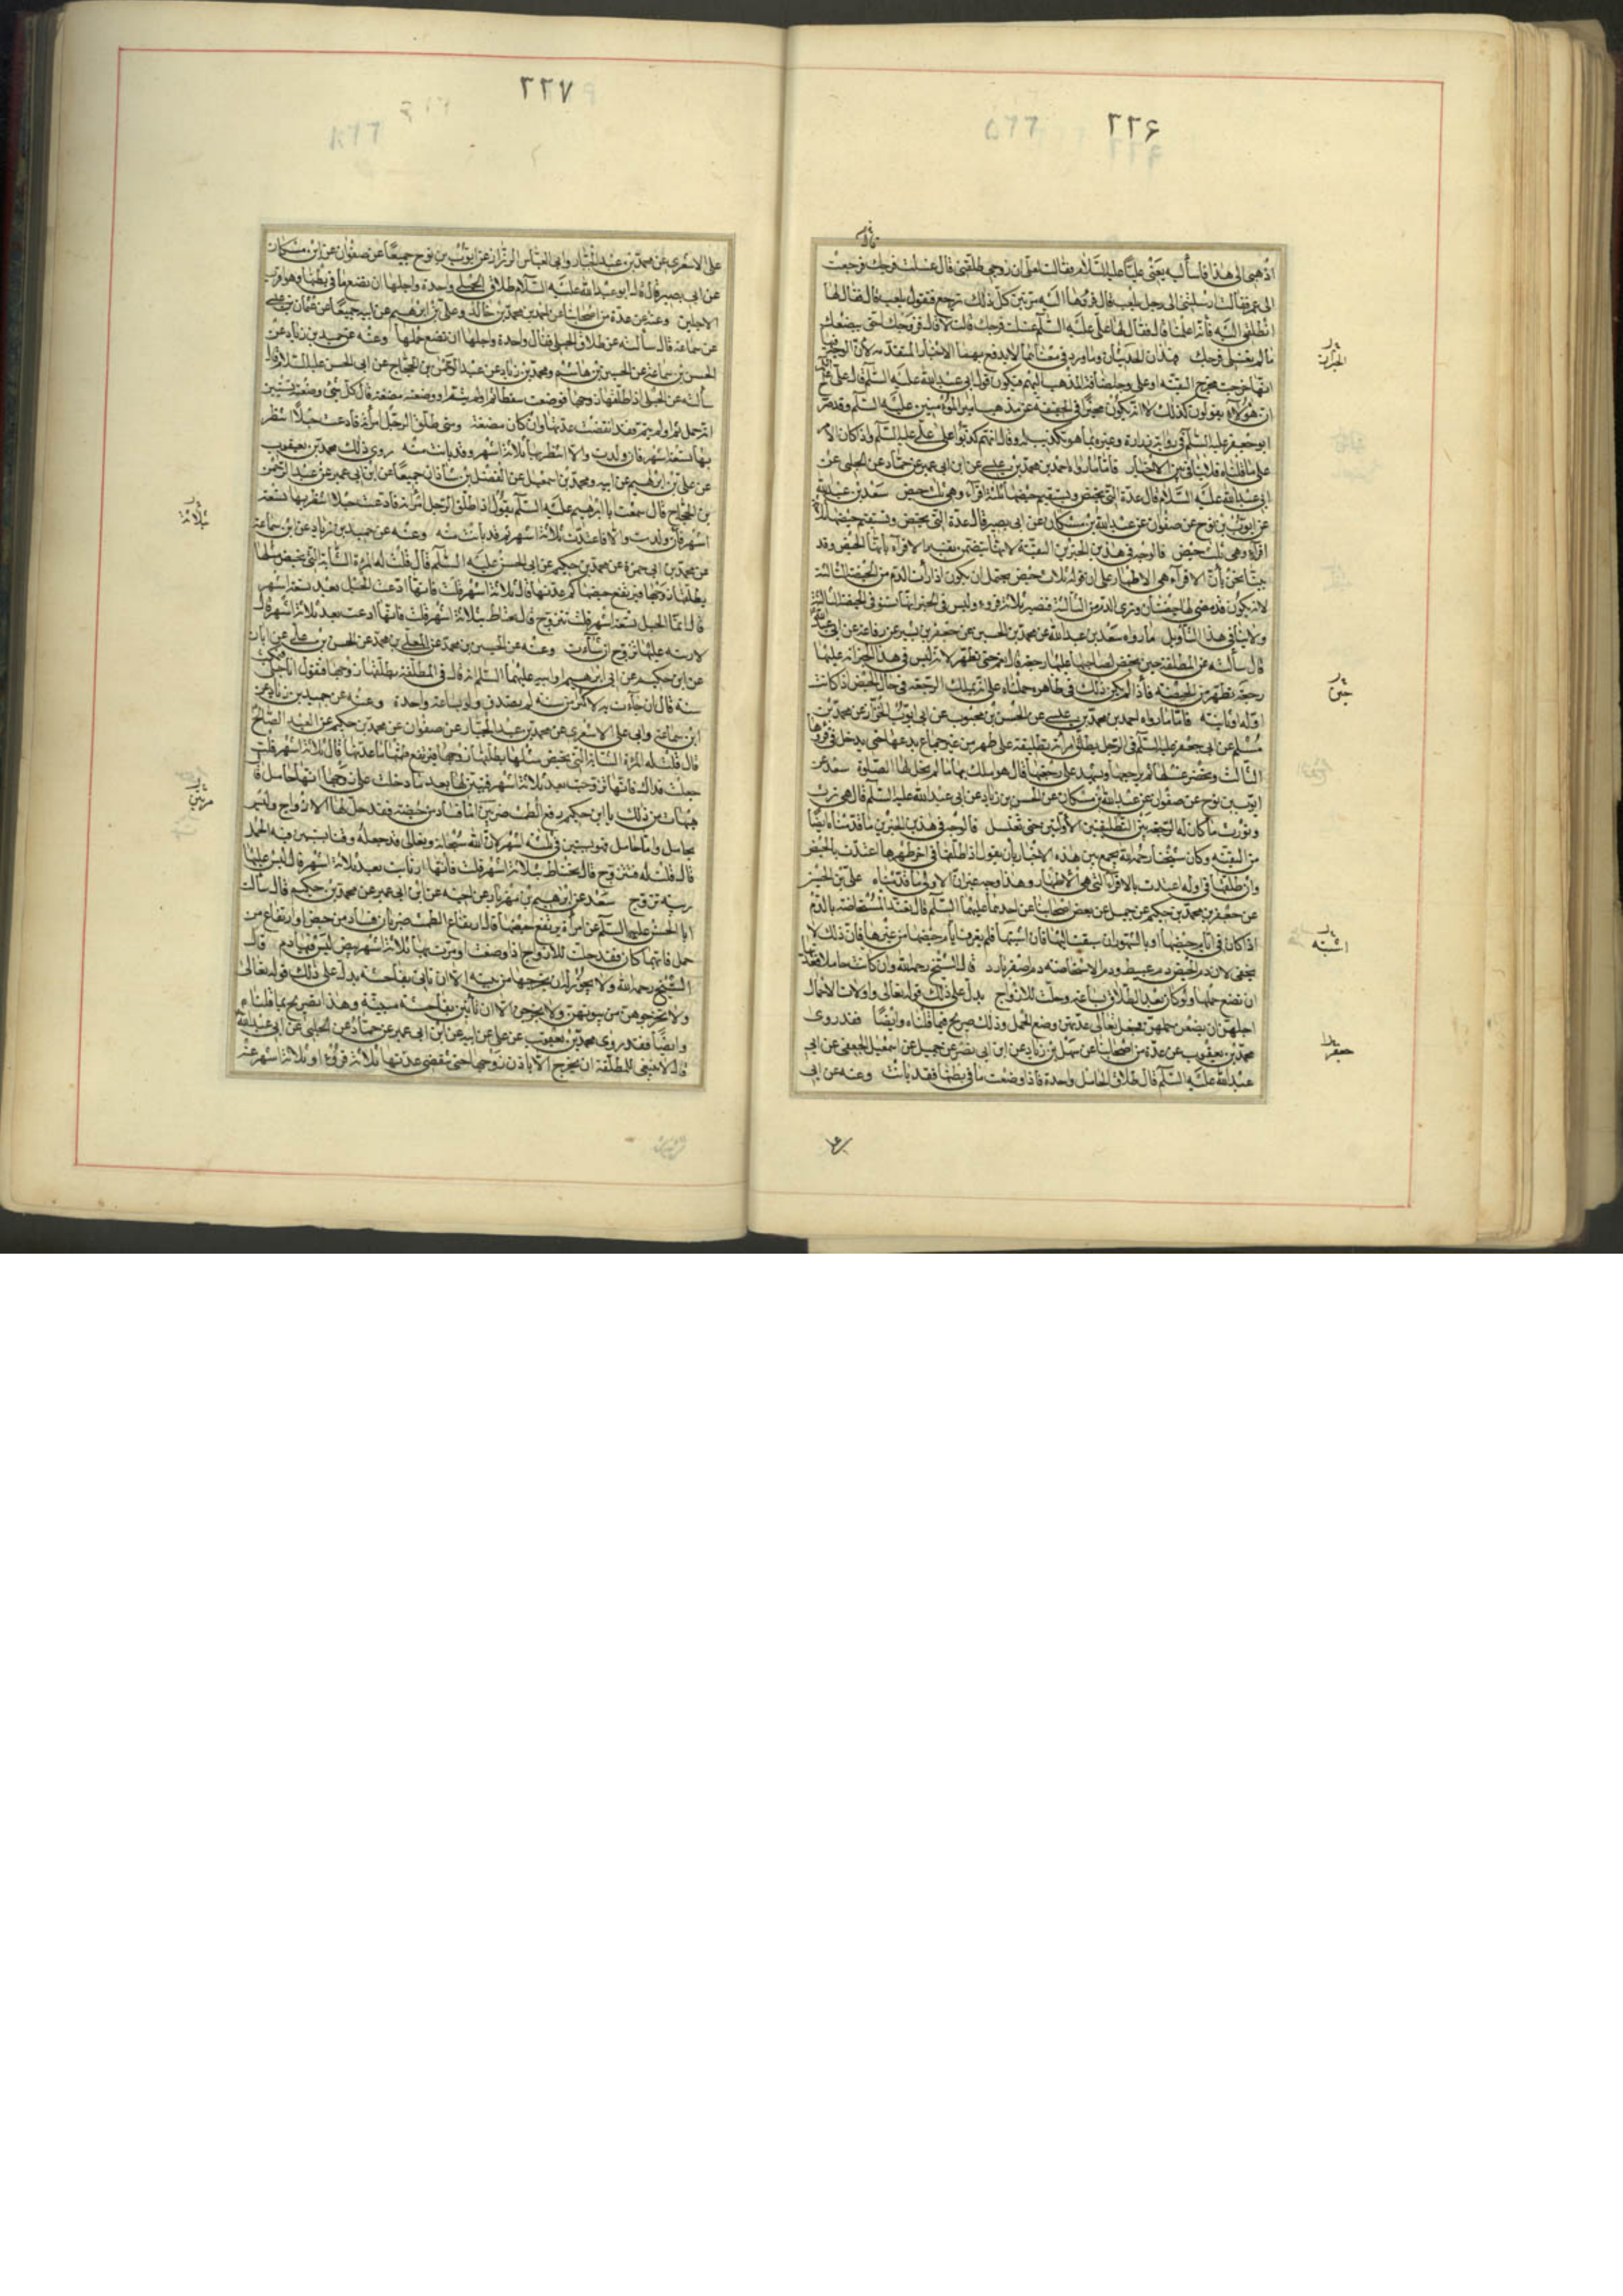 ٢٢۶
اذهبى الى هذا فاسأليه يعنى عليا عليه السلام فقالت لعلى ان زوجى طلقنى قال غسلت فرجك فرجعت
الى عمر فقالت ارسلتنى الى رجل يلعب قال فردها اليه مرتين كل ذلك ترجع فتقول يلعب قال فقال لها
انطلقى اليه فانه اعلمنا قال فقال لها على عليه السلم غسلت فرجك قالت لا قال فزوجك احق ببضعك
ما لم تغسلى فرجك فهذان الحديثان وما ورد فى معناهما لا يدفع بهما الاخبار المتقدمه لان الوجه فيها
انها خرجت مخرج التقيه او على وجه اضافة المذهب اليهم فيكون قول ابى عبد الله عليه السلم قال على
ان هؤلاء يقولون كذلك لا انه يكون مخبرا فى الحقيقة عن مذهب امير المؤمنين عليه السلم وقد صرح
ابو جعفر عليه السلم فى رواية زرارة وغيره بما هو تكذيب لهم وقال انهم كذبوا على على عليه السلم واذا كان الامر
على ما قلناه فلا تنافى بين الاخبار فاما ما رواه احمد بن محمد بن عيسى عن ابن ابى عمير عن حماد عن الحلبى عن
ابى عبد الله عليه السلام قال عدة التى تحيض ويستقيم حيضها ثلثة اقراء وهى ثلث حيض سعد بن عبد الله
عن ايوب بن نوح عن صفوان عن عبد الله بن مسكان عن ابى بصير قال عدة التى تحيض وتستقيم حيضها ثلثة
اقراء وهى ثلث حيض فالوجه فى هذين الخبرين التقية لانهما يتضمن تفسير الاقراء بانها الحيض وقد
بينا نحن بان الاقراء هى الاطهار على ان قوله ثلاث حيض يحتمل ان يكون اذا رأت الدم من الحيضة الثالثة
لانه يكون قد مضى لها حيضتان وترى الدم من الثالثة فتصير ثلاثة قروء وليس فى الخبر انها تستوفى الحيضة الثالثة
ولا ينافى هذا التأويل ما رواه سعد بن عبد الله عن محمد بن الحسين عن جعفر بن بشير عن رفاعة عن ابى عبد الله
قال سألته عن المطلقة حين تحيض لصاحبها عليها رجعة قال نعم حتى تطهر لانه ليس فى هذا الخبر انه عليها
رجعة تطهر من الحيضة فاذا لم يكن ذلك فى ظاهره حملناه على انه يملك الرجعة فى حال الحيض اذا كانت
اولة او ثانية فاما ما رواه احمد بن محمد بن عيسى عن الحسن بن محبوب عن ابى ايوب الخزاز عن محمد بن
مسلم عن ابى جعفر عليه السلم فى الرجل يطلق امرأته تطليقة على طهر من غير جماع يدعها حتى يدخل فى قروئها
الثالث ويحضر غسلها ثم يراجعها ويشهد على رجعتها قال هو املك بها ما لم تحل لها الصلوة سعد عن
ايوب بن نوح عن صفوان عن عبد الله بن مسكان عن الحسن بن زياد عن ابى عبد الله عليه السلم قال هى ترث
وتورث ما كان له الرجعة بين التطليقتين الاولتين حتى تغتسل فالوجه فى هذين الخبرين ما قدمناه ايضا
من التقيه وكان شيخنا رحمه الله يجمع بين هذه الاخبار بان يقول اذا طلقها فى آخر طهرها اعتدت بالحيض
وان طلقها فى اوله اعتدت بالاقراء التى هى الاطهار وهذا وجه غير ان الاولى ما قدمناه على بن الحسين
عن جعفر بن محمد بن حكيم عن جميل عن بعض اصحابنا عن احدهما عليهما السلم قال تعتد المستحاضة بالدم
اذا كان فى ايام حيضها او بالشهور ان سبقت اليها فان اشتبها فلم يعرف ايام حيضها من غيرها فان ذلك لا
يخفى لان دم الحيض دم عبيط ودم الاستحاضه دم اصفر بارد قال الشيخ رحمه الله وان كانت حاملا فعدتها
ان تضع حملها ولو كان بعد الطلاق بساعة وحلت للازواج يدل على ذلك قوله تعالى واولات الاحمال
اجلهن ان يضعن حملهن فجعل تعالى عدتهن وضع الحمل وذلك صريح فيما قلناه وايضا فقد روى
محمد بن يعقوب عن عدة من اصحابنا عن سهل بن زياد عن ابن ابى نصر عن جميل عن اسمعيل الجعفى عن ابى
عبد الله عليه السلم قال طلاق الحامل واحدة فاذا وضعت ما فى بطنها فقد بانت وعنه عن ابى
حين
اشتبه
جعفر
٢٢٧
على الاشعرى عن محمد بن عبد الجبار وابى العباس الرزاز عن ايوب بن نوح جميعا عن صفوان عن ابن مسكان
عن ابى بصير قال قال ابو عبد الله عليه السلام طلاق الحبلى واحدة واجلها ان تضع ما فى بطنها وهو اقرب
الاجلين وعنه عن عدة من اصحابنا عن احمد بن محمد بن خالد وعلى بن ابرهيم عن ابيه جميعا عن عثمان بن عيسى
عن سماعة قال سألته عن طلاق الحبلى فقال واحدة واجلها ان تضع حملها وعنه عن حميد بن زياد عن
الحسن بن سماعة عن الحسين بن هاشم ومحمد بن زياد عن عبد الرحمن بن الحجاج عن ابى الحسن عليه السلام قال
سألته عن الحبلى اذا طلقها زوجها فوضعت سقطا تم او لم يتم او وضعته مضغة قال كل شىء وضعته يستبين
انه حمل تم او لم يتم فقد انقضت عدتها وان كان مضغة ومتى طلق الرجل امرأته فادعت حبلا انتظر
بها تسعة اشهر فان ولدت والا انتظر بها ثلاثة اشهر وقد بانت منه روى ذلك محمد بن يعقوب
عن على بن ابرهيم عن ابيه ومحمد بن اسمعيل عن الفضل بن شاذان جميعا عن ابن ابى عمير عن عبد الرحمن
بن الحجاج قال سمعت ابا ابرهيم عليه السلم يقول اذا طلق الرجل امرأته فادعت حبلا انتظر بها تسعة
اشهر فان ولدت والا فاعتدت ثلاثة اشهر ثم قد بانت منه وعنه عن حميد بن زياد عن ابن سماعة
عن محمد بن ابى حمزة عن محمد بن حكيم عن ابى الحسن عليه السلم قال قلت له المرأة الشابة التى تحيض مثلها
يطلقها زوجها فيرتفع حيضها كم عدتها قال ثلاثة اشهر قلت فانها ادعت الحبل بعد تسعة اشهر
قال انما الحبل تسعة اشهر قلت تتزوج قال تحتاط بثلاثة اشهر قلت فانها ادعت بعد ثلاثة اشهر قال
لا ريبة عليها تزوج ان شاءت وعنه عن الحسين بن محمد عن المعلى بن محمد عن الحسن بن على عن ابان
عن ابن حكيم عن ابى ابرهيم او ابيه عليهما السلم انه قال فى المطلقة يطلقها زوجها فتقول انا حبلى فتمكث
سنة قال ان جاءت به لاكثر من سنة لم يصدق ولو بساعة واحدة وعنه عن حميد بن زياد عن
ابن سماعة وابى على الاشعرى عن محمد بن عبد الجبار عن صفوان عن محمد بن حكيم عن العبد الصالح
قال قلت له المرأة الشابة التى تحيض مثلها يطلقها زوجها فيرتفع طمثها ما عدتها قال ثلاثة اشهر قلت
جعلت فداك فانها تزوجت بعد ثلاثة اشهر فتبين لها بعد ما دخلت على زوجها انها حامل قال
هيهات من ذلك يا ابن حكيم رفع الطمث ضربين اما فساد من حيضة فقد حل لها الازواج وليس
بحامل واما حامل فهو يستبين فى ثلثة اشهر لان الله سبحانه وتعالى قد جعله وقتا يستبين فيه الحمل
قال قلت له فتتزوج قال يحتاط بثلاثة اشهر قلت فانها ارتابت بعد ثلاثة اشهر قال ليس عليها
ريبة تزوج سعد عن ابرهيم بن مهزيار عن اخيه عن ابن ابى عمير عن محمد بن حكيم قال سألت
ابا الحسن عليه السلم عن امرأة يرتفع حيضها قال ارتفاع الطمث ضربان فساد من حيض او ارتفاع من
حمل فايهما كان فقد حلت للازواج اذا وضعت او مرت بها ثلاثة اشهر بيض ليس فيها دم قال
الشيخ رحمه الله ولا يجوز له ان يخرجها من بيته الا ان تأتى بفاحشة يدل على ذلك قوله تعالى
ولا تخرجوهن من بيوتهن ولا يخرجن الا ان يأتين بفاحشة مبينة وهذا تصريح بما قلناه
وايضا فقد روى محمد بن يعقوب عن على عن ابيه عن ابن ابى عمير عن حماد عن الحلبى عن ابى عبد الله
قال لا ينبغى للمطلقة ان تخرج الا باذن زوجها حتى تنقضى عدتها ثلاثة قروء او ثلاثة اشهر عنه
ثلاثة